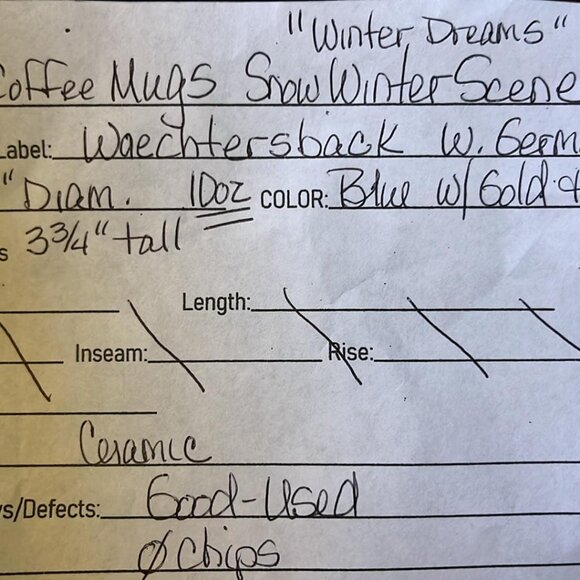 "Winter Dreams"
Coffee Mugs Snow Winter Scene
Label: Waechtersback W. Germ
" Diam. 10oz COLOR: Blue w/ Gold &
s 3 3/4" tall
Length:
Inseam: Rise:
Ceramic
ys/Defects: Good-Used
Ø Chips